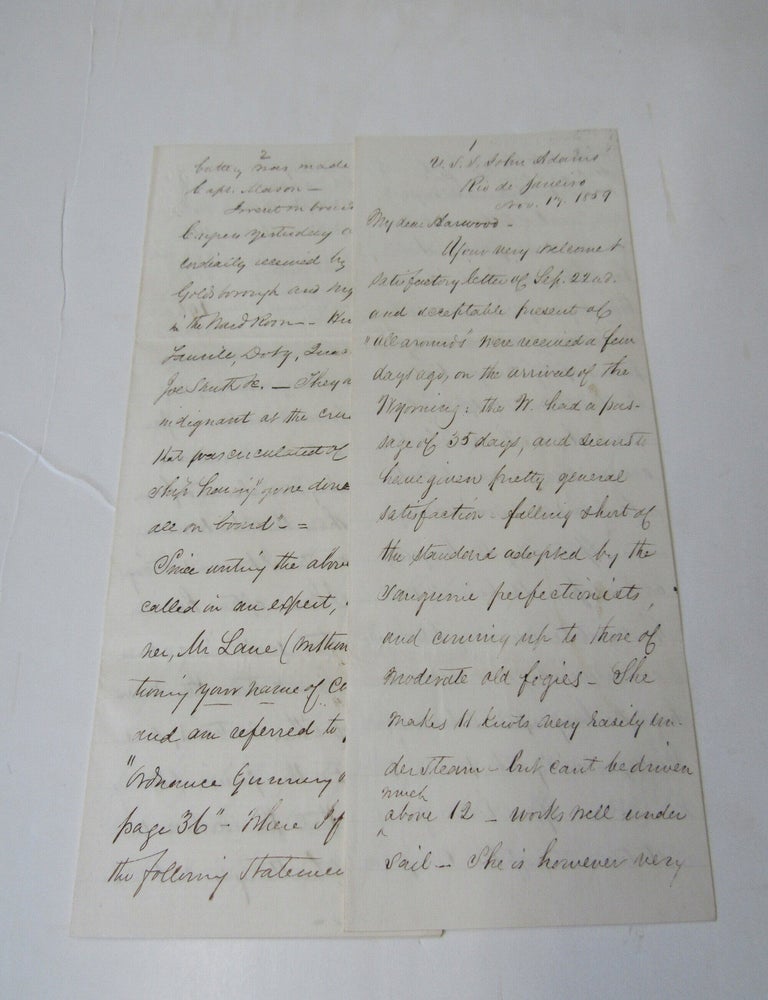 1
U.S.S. John Adams
Rio de Janeiro
Nov. 17. 1859
My dear Harwood -
Your very welcome &
satisfactory letter of Sep. 22nd.
and acceptable present of
"all arounds" were received a few
days ago, on the arrival of the
Wyoming: the W. had a pas-
sage of 35 days, and seems to
have given pretty general
satisfaction - falling short of
the standard adopted by the
sanguine perfectionists,
and coming up to those of
moderate old fogies - She
makes 11 knots very easily un-
der steam - but cant be driven
much
above 12 - works well under
sail - She is however very
2
was made
Capt. Mason -
I went on board
Congress yesterday
cordially received by
Goldsborough and
in the Ward Room -
Doby,
Joe Smith &c. - They
indignant at the
that was circulated of
ship having "gone down
all on board" - =
Since writing the above
called in an expert,
ner, Mr Lane (
tioning your name of
and am referred to
"Ordnance Gunnery
page 36" - Where I
the following Statemen